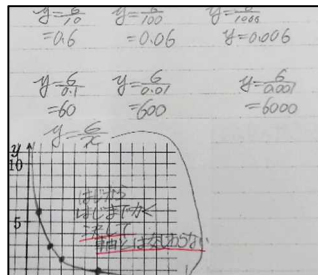 y=6/10 y=6/100 y=6/1000
=0.6 =0.06 y=0.006
y=6/0.1 y=6/0.01 y=6/0.001
=60 =600 =6000
y=6/x
y
10
5
はじから
はじまでかく
決して
軸とはまじわらない